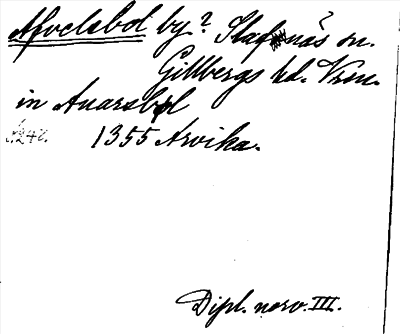 Afvelsbol by? Stafnäs sn.
Gillbergs hd. Vrm.
in Auarsbol
1355 Arvika.
Dipl. norv. III.